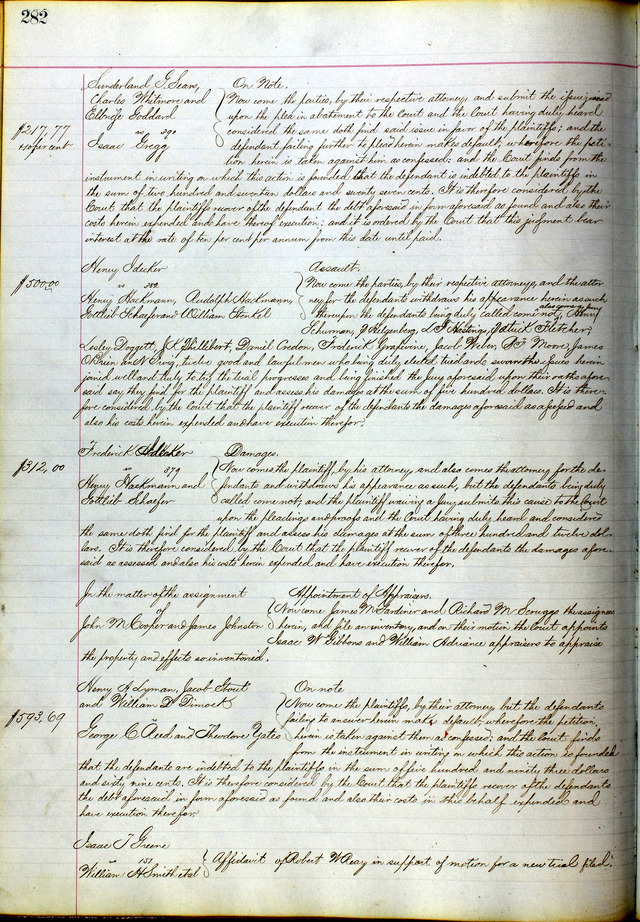 282
Sunderland G. Sears,
Charles Whitmore and
Elbridge Goddard
vs 590
Isaac Gregg
$217,77
10 per cent
On Note.
Now come the parties, by their respective attorneys and submit the issue joined
upon the plea in abatement to the Court and the Court having duly heard
considered the same doth find said issue in favor of the plaintiffs; and the
defendant failing further to plead herein makes default, wherefore the peti-
tion herein is taken against him as confessed; and the Court finds from the
instrument in writing on which this action is founded that the defendant is indebted to the plaintiffs in
the sum of two hundred and seventeen dollars and seventy seven cents. It is therefore considered by the
Court that the plaintiffs recover of the defendant the debt aforesaid in form aforesaid as found and also their
costs herein expended and have thereof execution; and it is ordered by the Court that this judgment bear
interest at the rate of ten per cent per annum from this date until paid.
Henry Idecker
vs
Henry Hackmann, Rudolph Hackmann,
Gottlieb Schaefer and William Stenkel
$500,00
Assault.
Now come the parties, by their respective attorneys, and the attor-
ney for the defendants withdraws his appearance herein as such
thereupon the defendants being duly called come not,
also comes a jury
Schurman, J Helgenberg, L T Hastings, Patrick Fletcher,
Lesley Doggett, Daniel Credon, Frederick Grapevine, Jacob Weber, R F Moore, James
O'Brien and twelve good and lawful men who being duly elected tried and sworn the issues herein
joined well and truly to try the trial progresses and being finished the jury aforesaid upon their oaths afore-
said say they find for the plaintiff and assess his damages at the sum of five hundred dollars. It is there-
fore considered by the Court that the plaintiff recover of the defendants the damages aforesaid as assessed and
also his costs herein expended and have execution therefor.
Frederick Idecker
vs 579
Henry Hackmann and
Gottlieb Schaefer
$312,00
Damages.
Now comes the plaintiff, by his attorney, and also comes the attorney for the de-
fendants and withdraws his appearance as such, but the defendants being duly
called come not; and the plaintiff waiving a jury submits this cause to the Court
upon the pleadings and proofs and the Court having duly heard and considered
the same doth find for the plaintiff and assess his damages at the sum of three hundred and twelve dol-
lars. It is therefore considered by the Court that the plaintiff recover of the defendants the damages afore-
said as assessed and also his costs herein expended and have execution therefor.
In the matter of the assignment
of
John M Cooper and James Johnston
Appointment of Appraisers.
Now come James M Gardiner and Richard M Scruggs the assignees
herein, and file an inventory, and on their motion the Court appoints
Isaac W Gibbons and William Adriance appraisers to appraise
the property and effects so inventoried.
Henry A Lyman, Jacob Stout
and William D Dimock
vs
George C Reed and Theodore Yates
$593,69
On note
Now come the plaintiffs, by their attorney but the defendants
failing to answer herein make default, wherefore the petition,
herein is taken against them as confessed; and the Court finds
from the instrument in writing on which this action is founded
that the defendants are indebted to the plaintiffs in the sum of five hundred and ninety three dollars
and sixty nine cents. It is therefore considered by the Court that the plaintiffs recover of the defendants
the debt aforesaid in form aforesaid as found and also their costs in this behalf expended and
have execution therefor.
Isaac T Greene
vs 151
William H Smith et al
Affidavit of Robert W Deay in support of motion for a new trial filed.